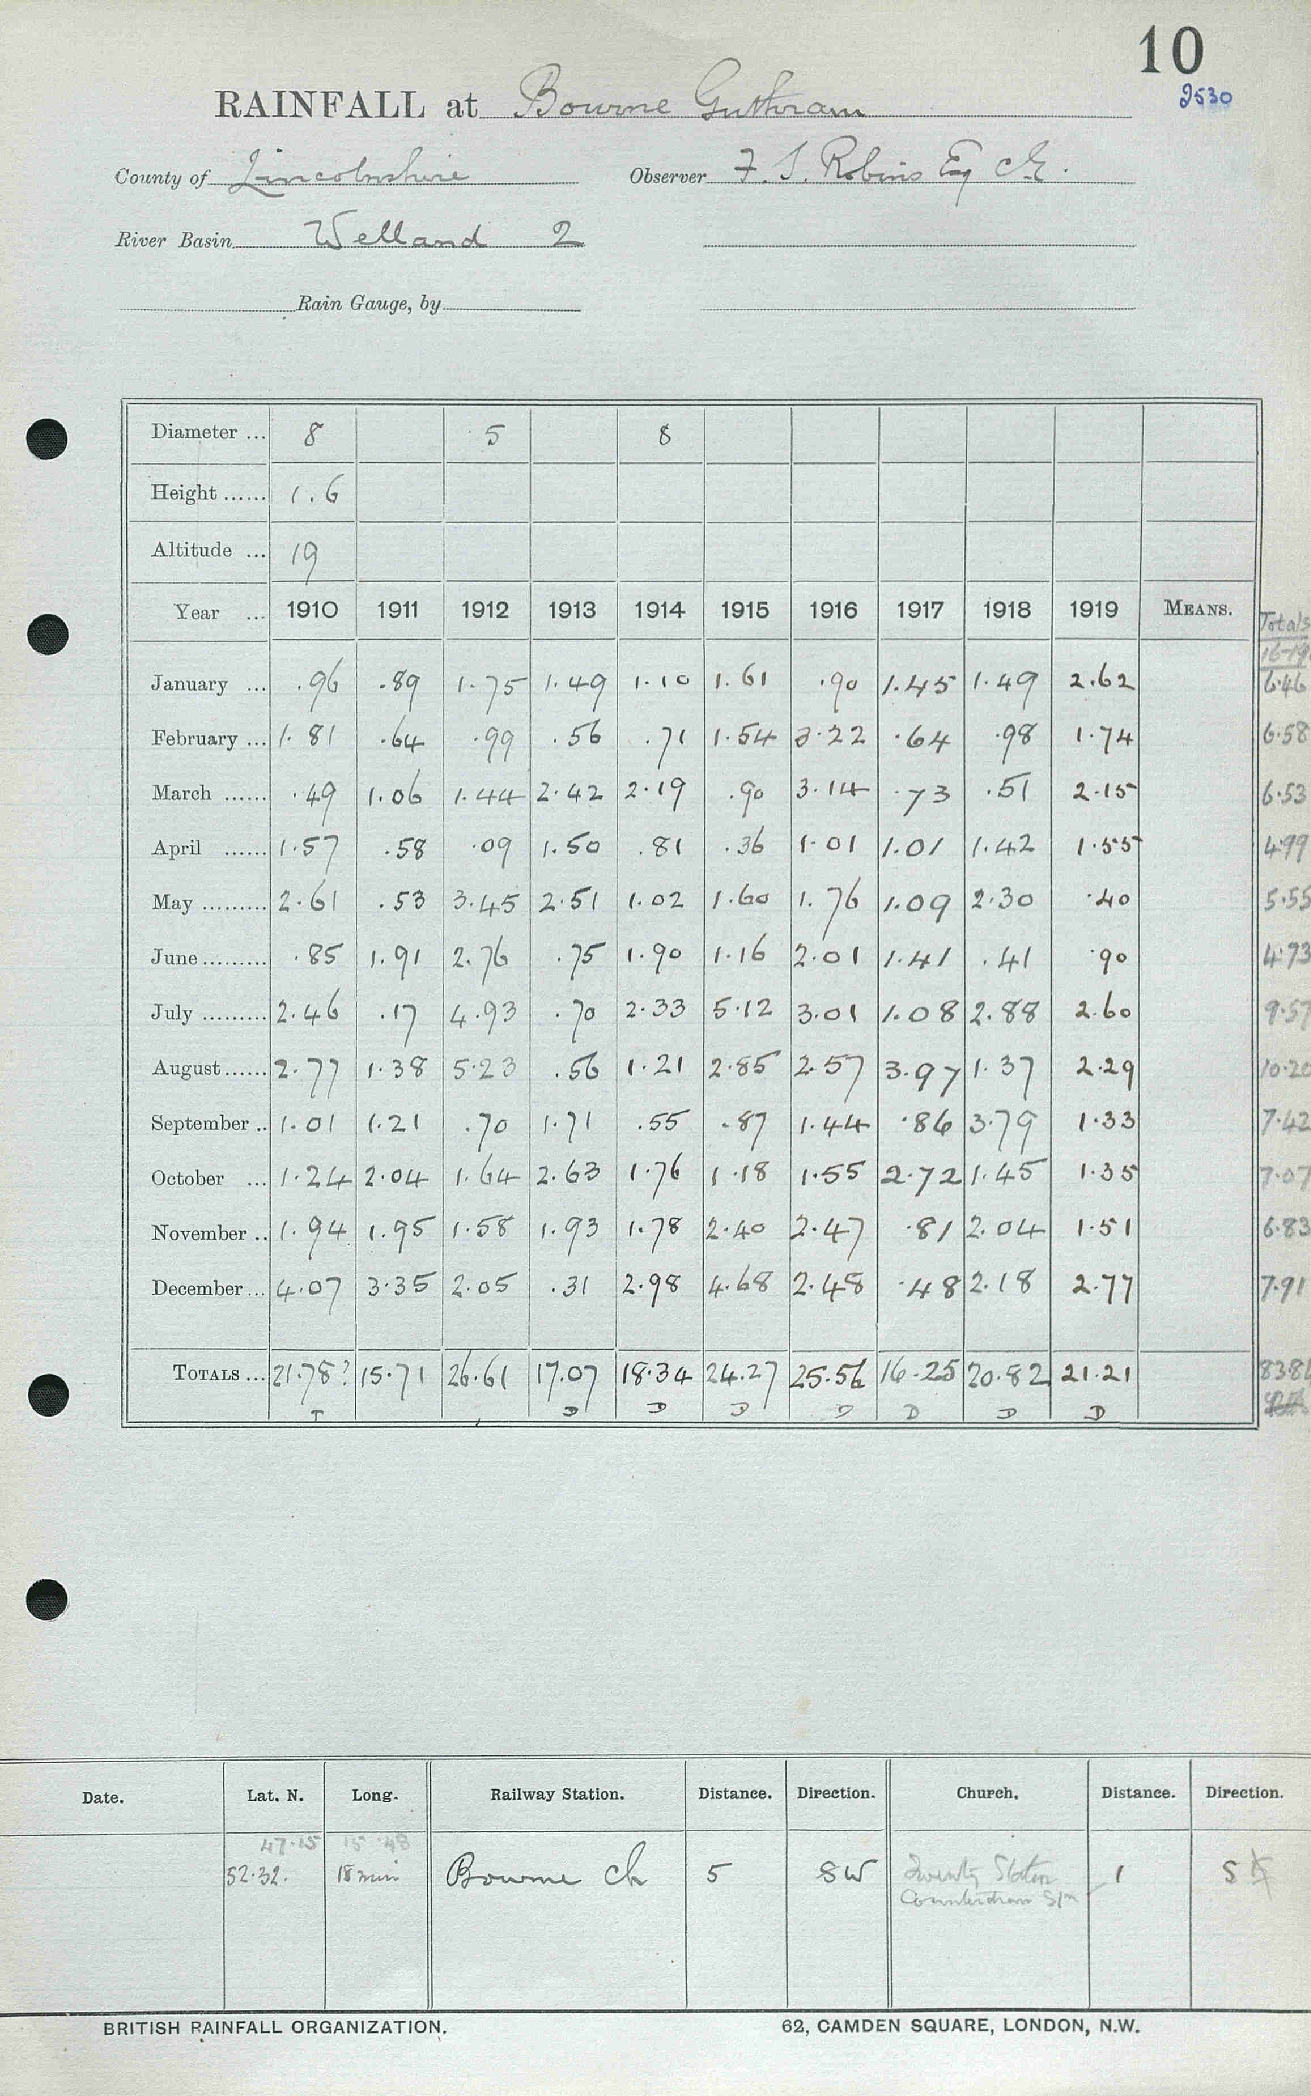 10
2530
RAINFALL at Bourne Guthram
County of Lincolnshire Observer F. S. Robins Esq C.E.
River Basin Welland 2
Rain Gauge, by
Diameter ... 8 5 8
Height ...... 1.6
Altitude ... 19
Year ... 1910 1911 1912 1913 1914 1915 1916 1917 1918 1919 MEANS. Totals
16-19
January ... .96 .89 1.75 1.49 1.10 1.61 .90 1.45 1.49 2.62 6.46
February ... 1.81 .64 .99 .56 .71 1.54 3.22 .64 .98 1.74 6.58
March ...... .49 1.06 1.44 2.42 2.19 .90 3.14 .73 .51 2.15 6.53
April ...... 1.57 .58 .09 1.50 .81 .36 1.01 1.01 1.42 1.55 4.99
May ......... 2.61 .53 3.45 2.51 1.02 1.60 1.76 1.09 2.30 .40 5.55
June ......... .85 1.91 2.76 .75 1.90 1.16 2.01 1.41 .41 .90 4.73
July ......... 2.46 .17 4.93 .70 2.33 5.12 3.01 1.08 2.88 2.60 9.57
August ...... 2.77 1.38 5.23 .56 1.21 2.85 2.57 3.97 1.37 2.29 10.20
September .. 1.01 1.21 .70 1.71 .55 .87 1.44 .86 3.79 1.33 7.42
October ... 1.24 2.04 1.64 2.63 1.76 1.18 1.55 2.72 1.45 1.35 7.07
November .. 1.94 1.95 1.58 1.93 1.78 2.40 2.47 .81 2.04 1.51 6.83
December ... 4.07 3.35 2.05 .31 2.98 4.68 2.48 .48 2.18 2.77 7.91
TOTALS ... 21.78? 15.71 26.61 17.07 18.34 24.27 25.56 16.25 20.82 21.21
T D D D D D D D
Date. Lat. N. Long. Railway Station. Distance. Direction. Church. Distance. Direction.
47.15 15.48
52.32. 18 min Bourne Ch 5 SW Twenty Station 1 S
Counterdrain Stn
BRITISH RAINFALL ORGANIZATION. 62, CAMDEN SQUARE, LONDON, N.W.